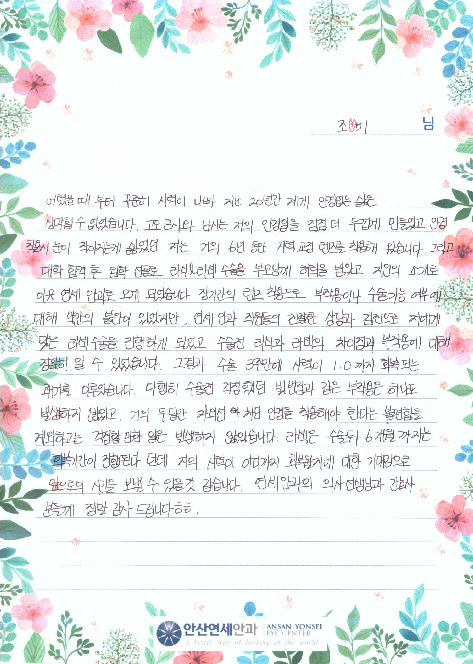 조♡비 님
어렸을 때 부터 꾸준히 시력이 나빠 지난 20년간 저에게 안경없는 삶은
생각할 수 없었습니다. 고도 근시와 난시는 저의 안경알을 점점 더 두껍게 만들었고 안경
착용시 눈이 작아지는게 싫었던 저는 거의 6년 동안 시력교정 렌즈를 착용해 왔습니다. 그리고
대학 합격 후 입학 선물로 라식&라섹 수술을 부모님께 허락을 받았고 지인의 소개로
이곳 연세 안과로 오게 되었습니다. 장기간의 렌즈 착용으로 부작용이나 수술가능 여부에
대해 약간의 불안이 있었지만, 연세 안과 직원들의 친절한 상담과 검진으로 저에게
맞는 라섹수술을 결정하게 되었고 수술전 라식과 라섹의 차이점과 부작용에 대해
정확히 알 수 있었습니다. 그리고 수술 3주만에 시력이 1.0까지 회복되는
결과를 이루었습니다. 다행히 수술전 걱정했던 빛번짐과 같은 부작용은 하나도
발생하지 않았고, 거의 두달간 자외선 차단 안경을 착용해야 한다는 불편함을
제외하고는 걱정할 만한 일은 발생하지 않았습니다. 라섹은 수술뒤 6개월 까지는
회복기간이 진행된다 던데 저의 시력이 어디까지 회복될지에 대한 기대감으로
앞으로의 시간을 보낼 수 있을것 같습니다. 연세안과의 의사선생님과 간호사
분들께 정말 감사 드립니다ㅎㅎ.
안산연세안과 ANSAN YONSEI
EYE CENTER
A better way of looking at the world